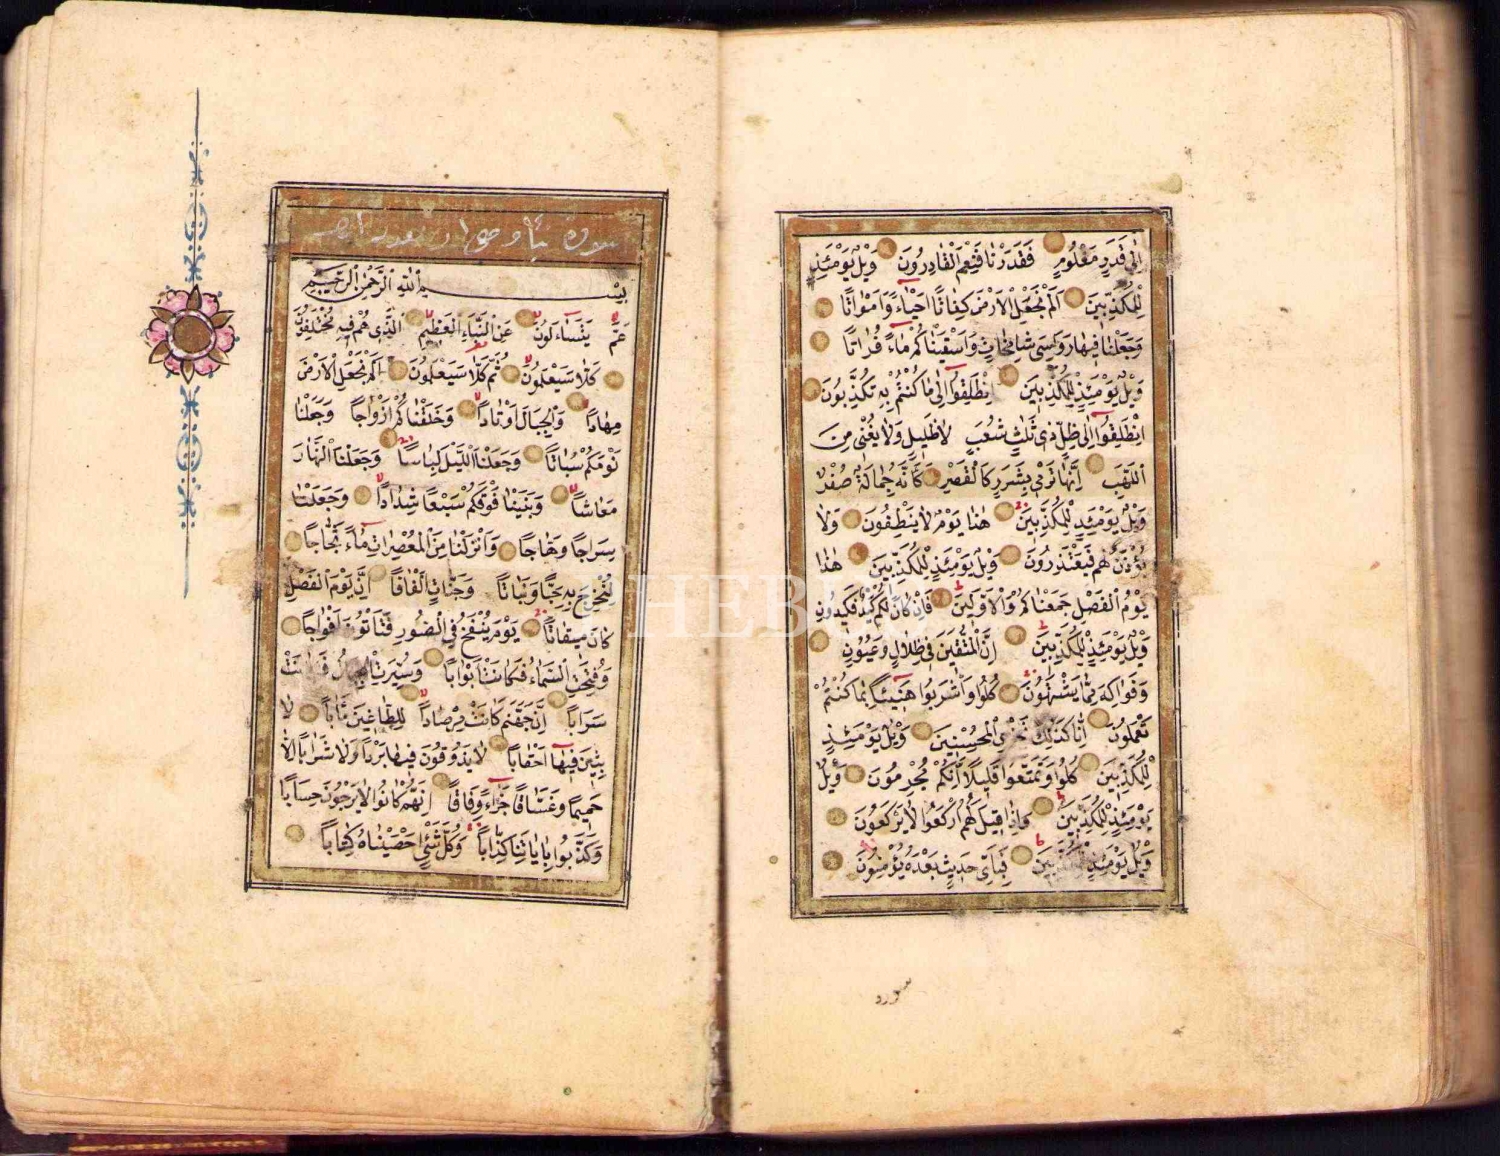 إِلَى قَدَرٍ مَعْلُومٍ فَقَدَرْنَا فَنِعْمَ الْقَادِرُونَ وَيْلٌ يَوْمَئِذٍ
لِلْمُكَذِّبِينَ أَلَمْ نَجْعَلِ الْأَرْضَ كِفَاتًا أَحْيَاءً وَأَمْوَاتًا
وَجَعَلْنَا فِيهَا رَوَاسِيَ شَامِخَاتٍ وَأَسْقَيْنَاكُمْ مَاءً فُرَاتًا
وَيْلٌ يَوْمَئِذٍ لِلْمُكَذِّبِينَ انْطَلِقُوا إِلَى مَا كُنْتُمْ بِهِ تُكَذِّبُونَ
انْطَلِقُوا إِلَى ظِلٍّ ذِي ثَلَثِ شُعَبٍ لَا ظَلِيلٍ وَلَا يُغْنِي مِنَ
اللَّهَبِ إِنَّهَا تَرْمِي بِشَرَرٍ كَالْقَصْرِ كَأَنَّهُ جِمَالَةٌ صُفْرٌ
وَيْلٌ يَوْمَئِذٍ لِلْمُكَذِّبِينَ هَذَا يَوْمُ لَا يَنْطِقُونَ وَلَا
يُؤْذَنُ لَهُمْ فَيَعْتَذِرُونَ وَيْلٌ يَوْمَئِذٍ لِلْمُكَذِّبِينَ هَذَا
يَوْمُ الْفَصْلِ جَمَعْنَاكُمْ وَالْأَوَّلِينَ فَإِنْ كَانَ لَكُمْ كَيْدٌ فَكِيدُونِ
وَيْلٌ يَوْمَئِذٍ لِلْمُكَذِّبِينَ إِنَّ الْمُتَّقِينَ فِي ظِلَالٍ وَعُيُونٍ
وَفَوَاكِهَ مِمَّا يَشْتَهُونَ كُلُوا وَاشْرَبُوا هَنِيئًا بِمَا كُنْتُمْ
تَعْمَلُونَ إِنَّا كَذَلِكَ نَجْزِي الْمُحْسِنِينَ وَيْلٌ يَوْمَئِذٍ
لِلْمُكَذِّبِينَ كُلُوا وَتَمَتَّعُوا قَلِيلًا إِنَّكُمْ مُجْرِمُونَ وَيْلٌ
يَوْمَئِذٍ لِلْمُكَذِّبِينَ وَإِذَا قِيلَ لَهُمُ ارْكَعُوا لَا يَرْكَعُونَ
وَيْلٌ يَوْمَئِذٍ لِلْمُكَذِّبِينَ فَبِأَيِّ حَدِيثٍ بَعْدَهُ يُؤْمِنُونَ
سورة
بِسْمِ اللَّهِ الرَّحْمَنِ الرَّحِيمِ
عَمَّ يَتَسَاءَلُونَ عَنِ النَّبَإِ الْعَظِيمِ الَّذِي هُمْ فِيهِ مُخْتَلِفُونَ
كَلَّا سَيَعْلَمُونَ ثُمَّ كَلَّا سَيَعْلَمُونَ أَلَمْ نَجْعَلِ الْأَرْضَ
مِهَادًا وَالْجِبَالَ أَوْتَادًا وَخَلَقْنَاكُمْ أَزْوَاجًا وَجَعَلْنَا
نَوْمَكُمْ سُبَاتًا وَجَعَلْنَا اللَّيْلَ لِبَاسًا وَجَعَلْنَا النَّهَارَ
مَعَاشًا وَبَنَيْنَا فَوْقَكُمْ سَبْعًا شِدَادًا وَجَعَلْنَا
سِرَاجًا وَهَّاجًا وَأَنْزَلْنَا مِنَ الْمُعْصِرَاتِ مَاءً ثَجَّاجًا
لِنُخْرِجَ بِهِ حَبًّا وَنَبَاتًا وَجَنَّاتٍ أَلْفَافًا إِنَّ يَوْمَ الْفَصْلِ
كَانَ مِيقَاتًا يَوْمَ يُنْفَخُ فِي الصُّورِ فَتَأْتُونَ أَفْوَاجًا
وَفُتِحَتِ السَّمَاءُ فَكَانَتْ أَبْوَابًا وَسُيِّرَتِ الْجِبَالُ فَكَانَتْ
سَرَابًا إِنَّ جَهَنَّمَ كَانَتْ مِرْصَادًا لِلطَّاغِينَ مَآبًا لَا
بِثِينَ فِيهَا أَحْقَابًا لَا يَذُوقُونَ فِيهَا بَرْدًا وَلَا شَرَابًا إِلَّا
حَمِيمًا وَغَسَّاقًا جَزَاءً وِفَاقًا إِنَّهُمْ كَانُوا لَا يَرْجُونَ حِسَابًا
وَكَذَّبُوا بِآيَاتِنَا كِذَّابًا وَكُلَّ شَيْءٍ أَحْصَيْنَاهُ كِتَابًا
PHEBUS